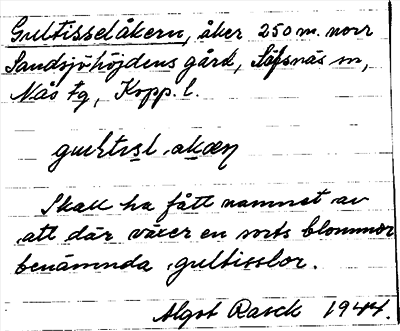 Gultisselåkern, åker 250 m. norr
Sandsjöhöjdens gård, Säfsnäs sn,
Nås tg, Kopp. l.
Skall ha fått namnet av
att där växer en sorts blommor
benämnda gultisslor.
Algot Rasck 1944.